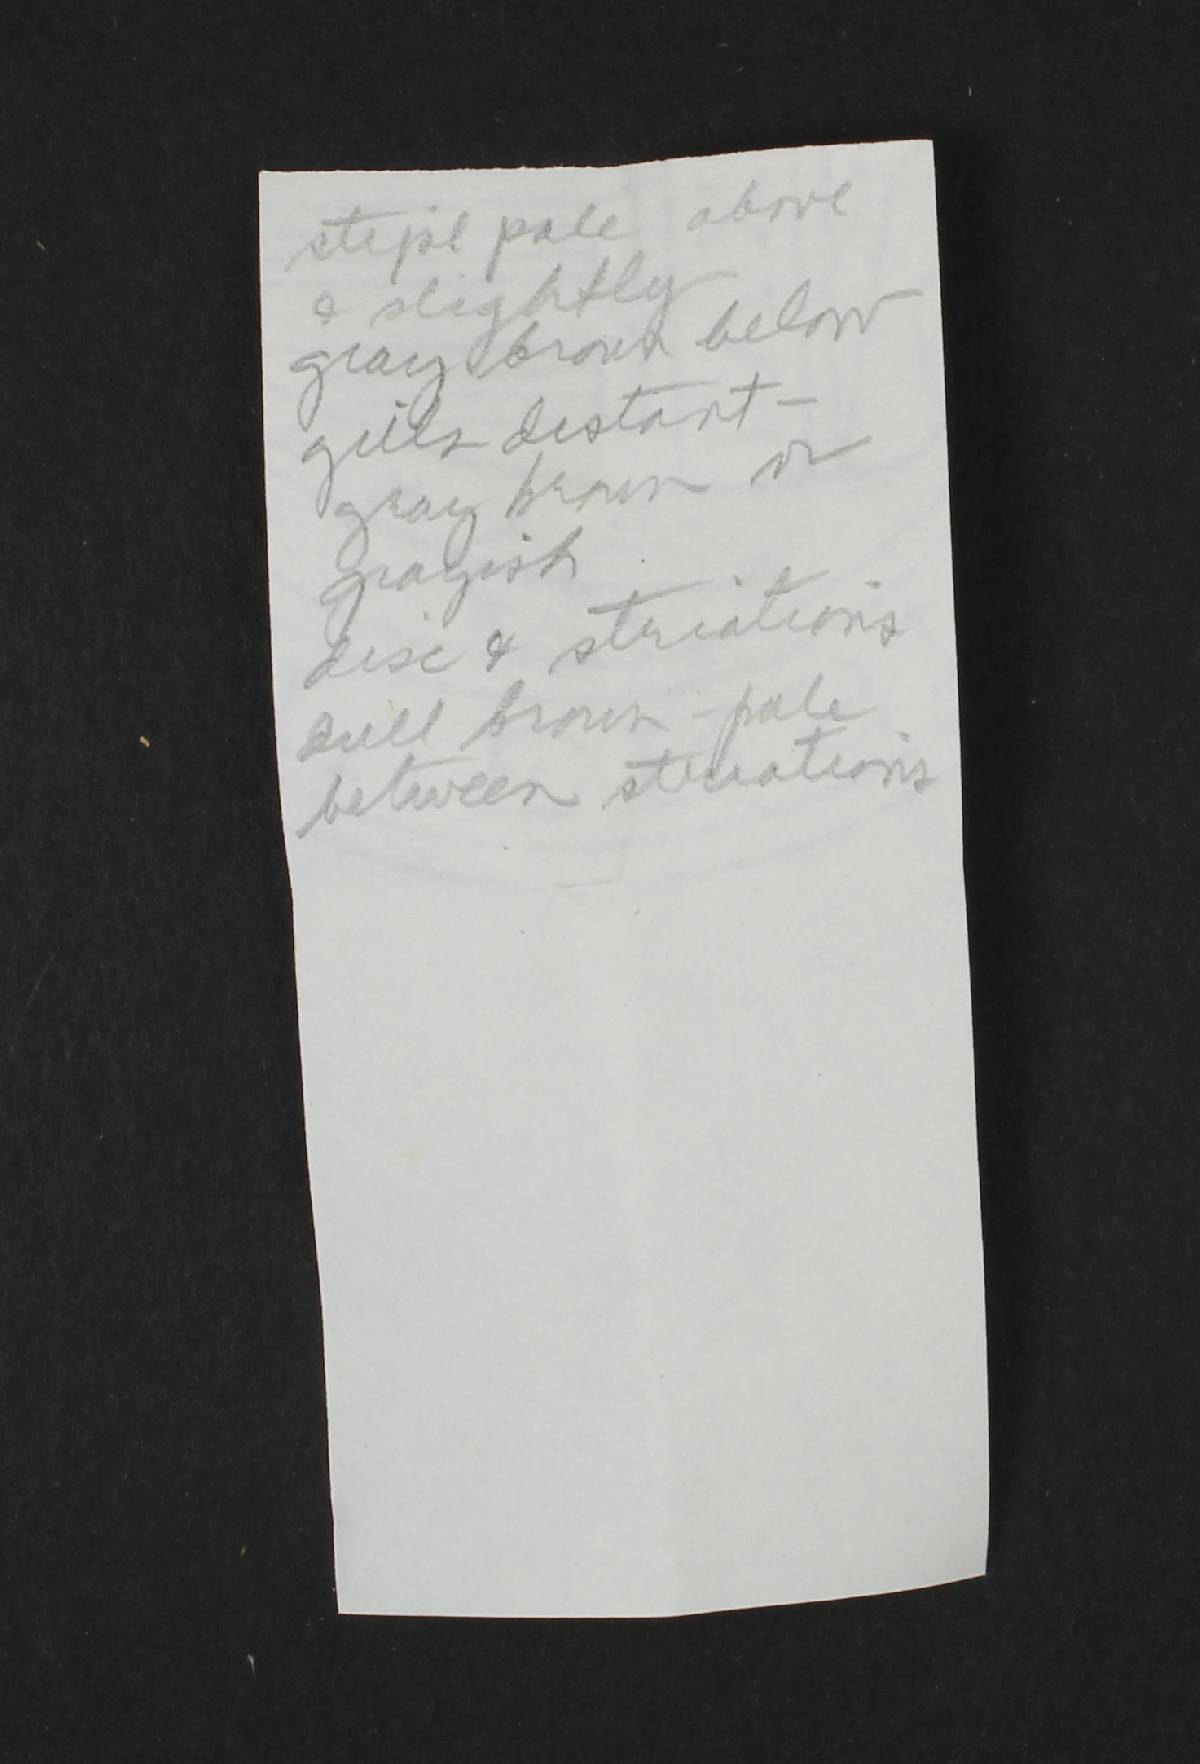 stipe pale above
& slightly
gray brown below
gills distant -
gray brown or
grayish
disc & striations
dull brown - pale
between striations